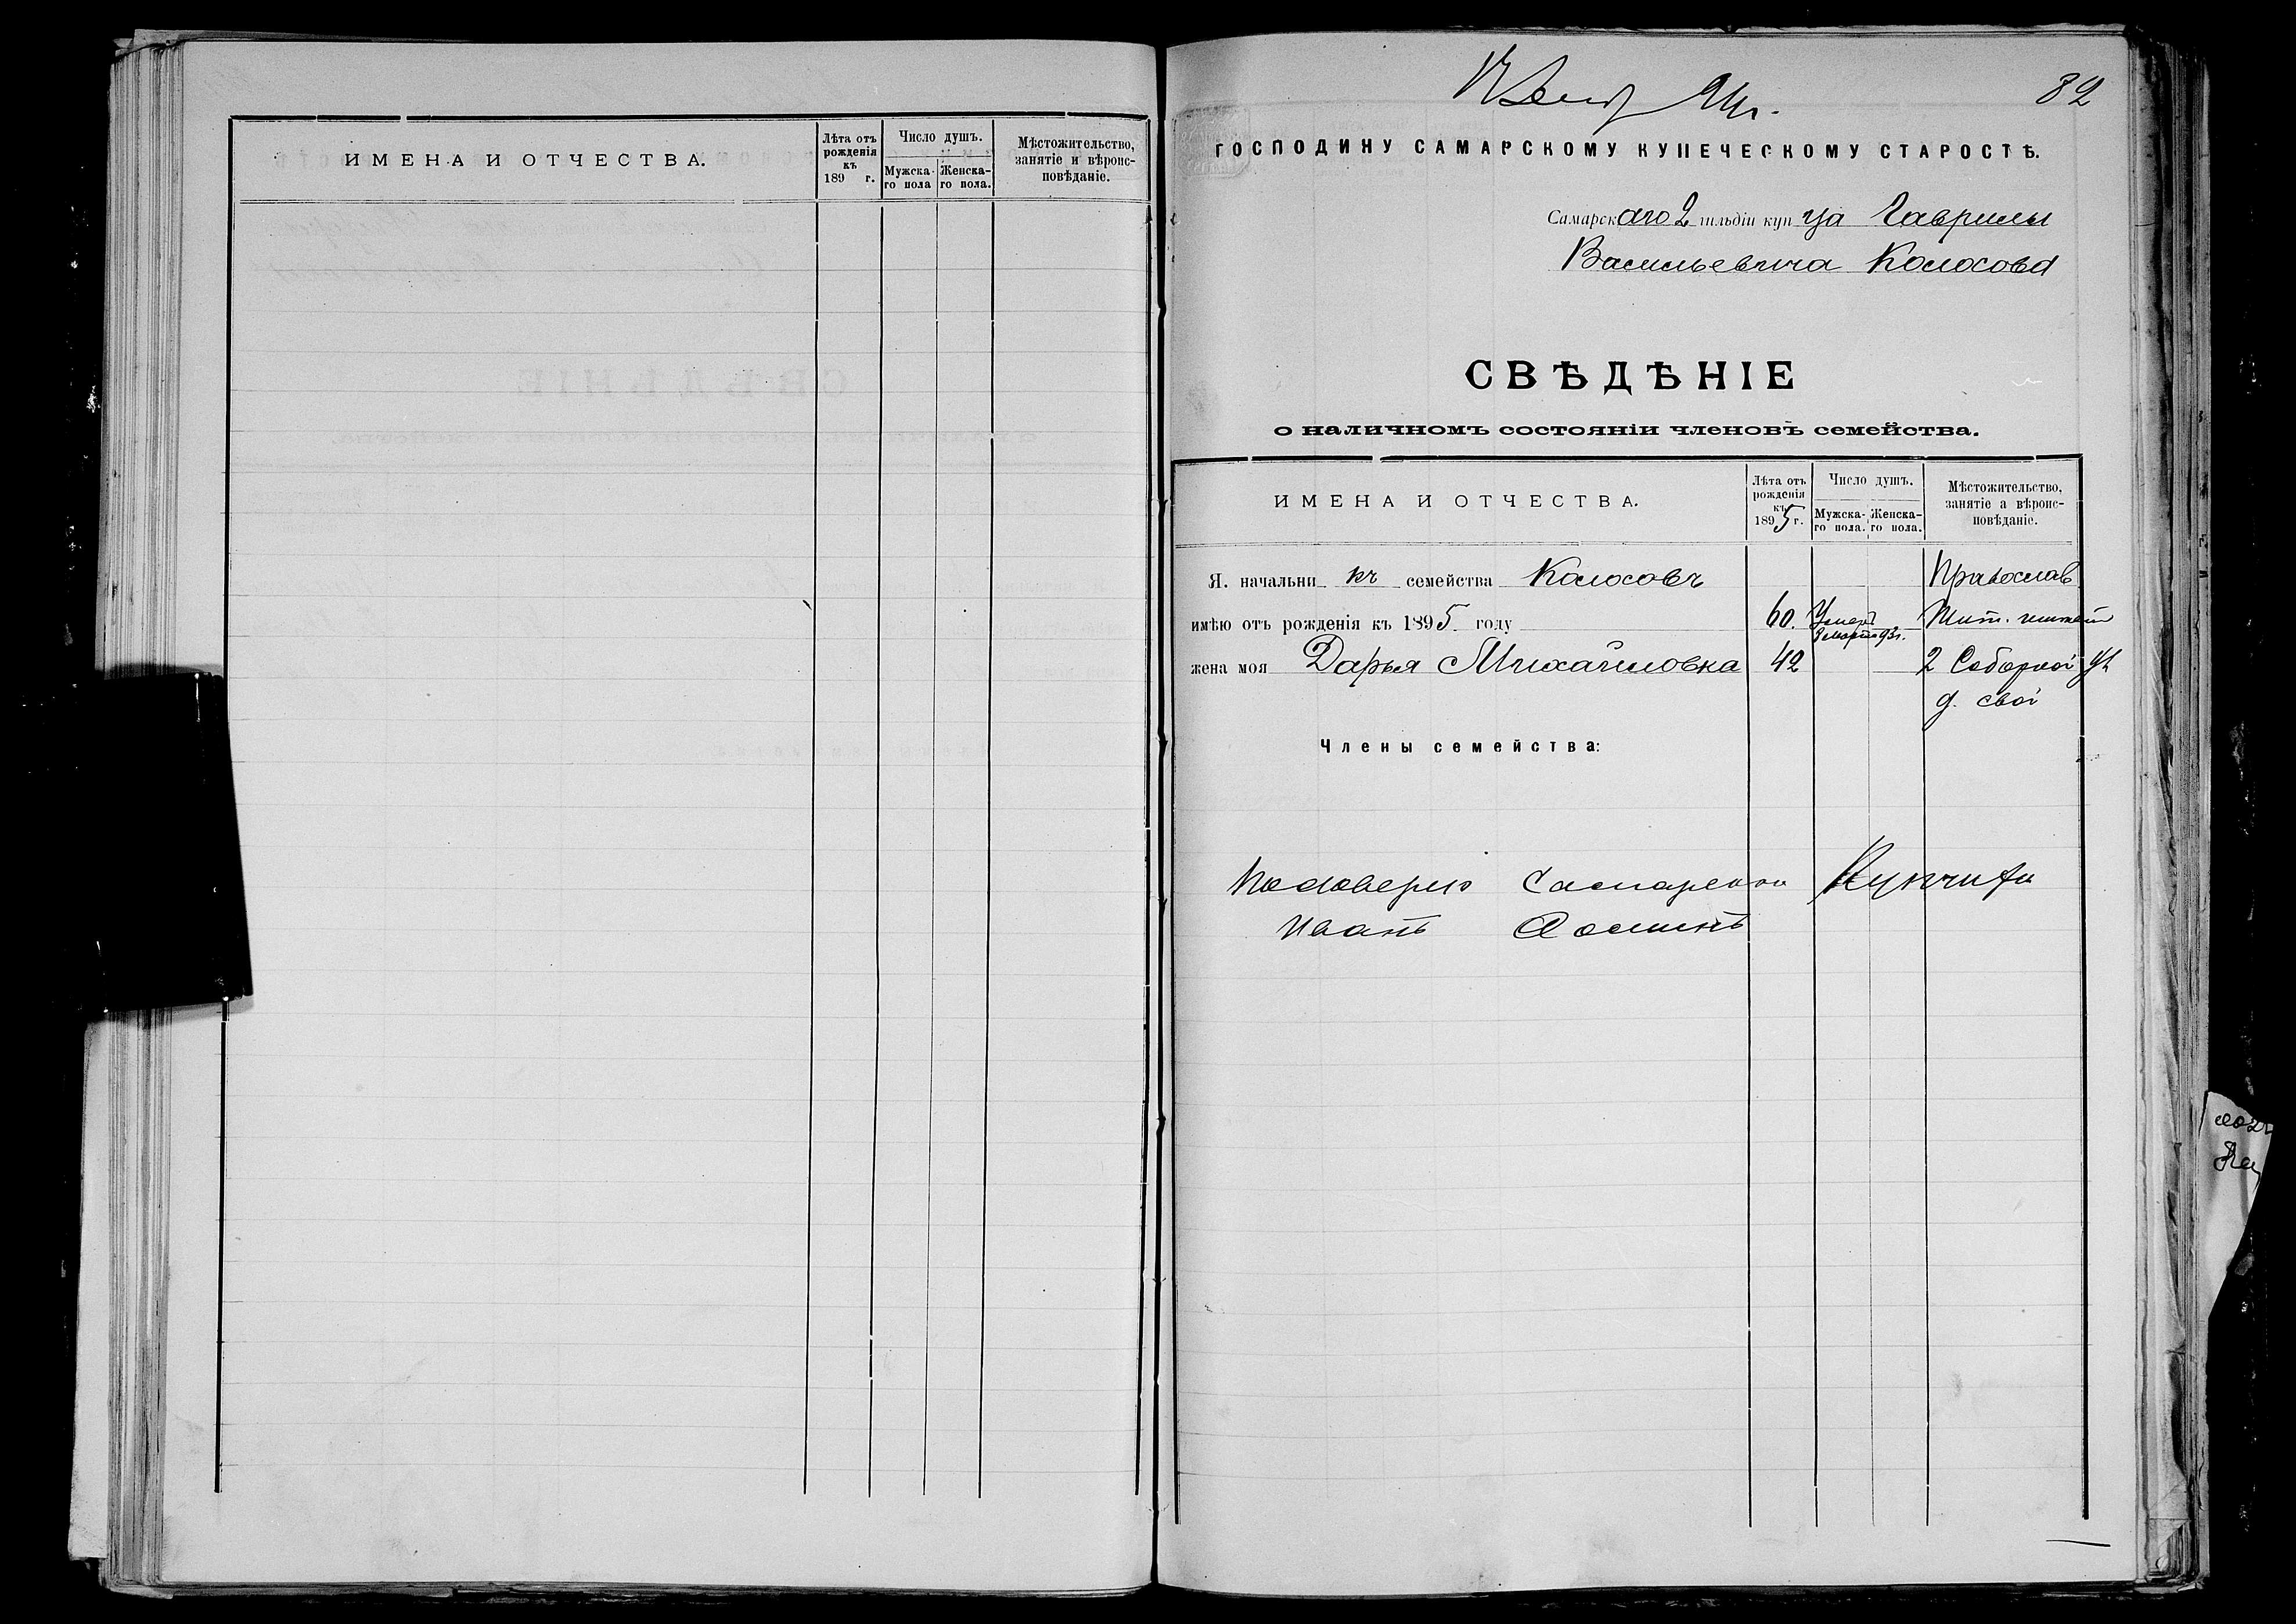 ИМЕНА И ОТЧЕСТВА.
Лѣта отъ рожденія къ 189 г.
Число душъ.
Мужскаго пола
Женскаго пола.
Мѣстожительство, занятіе и вѣроисповѣданіе.
82
ГОСПОДИНУ САМАРСКОМУ КУПЕЧЕСКОМУ СТАРОСТѢ.
Самарскаго 2 гильдіи купца Гаврилы
Васильевича Колосова
СВѢДѢНІЕ
о наличномъ состояніи членовъ семейства.
ИМЕНА И ОТЧЕСТВА.
Лѣта отъ рожденія къ 1895 г.
Число душъ.
Мужска-го пола.
Женска-го пола.
Мѣстожительство, занятіе а вѣроис-повѣданіе.
Я. начальникъ семейства Колосовъ Православ
имѣю отъ рожденія къ 1895 году 60. Умеръ Жит.
жена моя Дарья Михайловна 42 2 Соборной ул
д. свой
Члены семейства:
Самарской
Иванъ